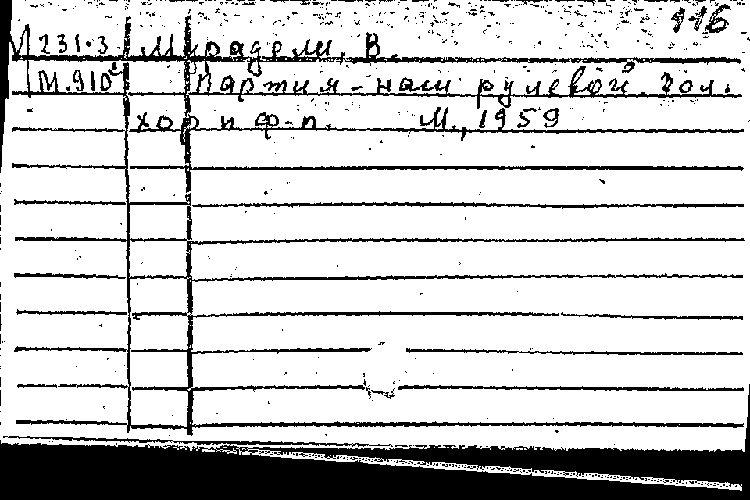 116
V 231.3 Мурадели, В.
М.910² Партия - наш рулевой. Гол.
хор и ф-п. М., 1959